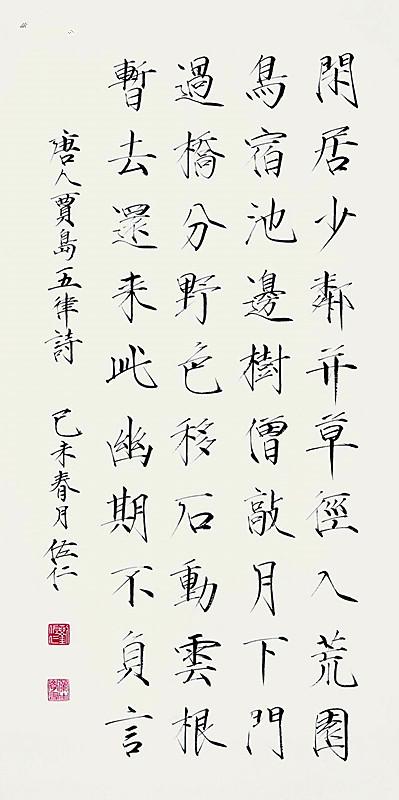 閑居少鄰并草徑入荒園
鳥宿池邊樹僧敲月下門
過橋分野色移石動雲根
暫去還来此幽期不負言
唐人賈島五律詩 己未春月佐仁